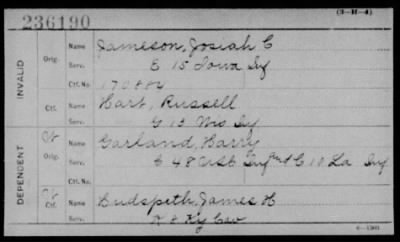 236190
(3-H-4)
INVALID
Orig.
Name Jameson, Josiah C
Serv. E 15 Iowa Inf
Ctf. No. 170884
Ctf.
Name Hart, Russell
Serv. G 13 Mo Inf
DEPENDENT
Orig.
Name Garland, Harry
Serv. 48 USC Inf and C 10 La Inf
Ctf. No.
Ctf.
Name Hudspeth, James H
Serv. K 8 Ky Cav